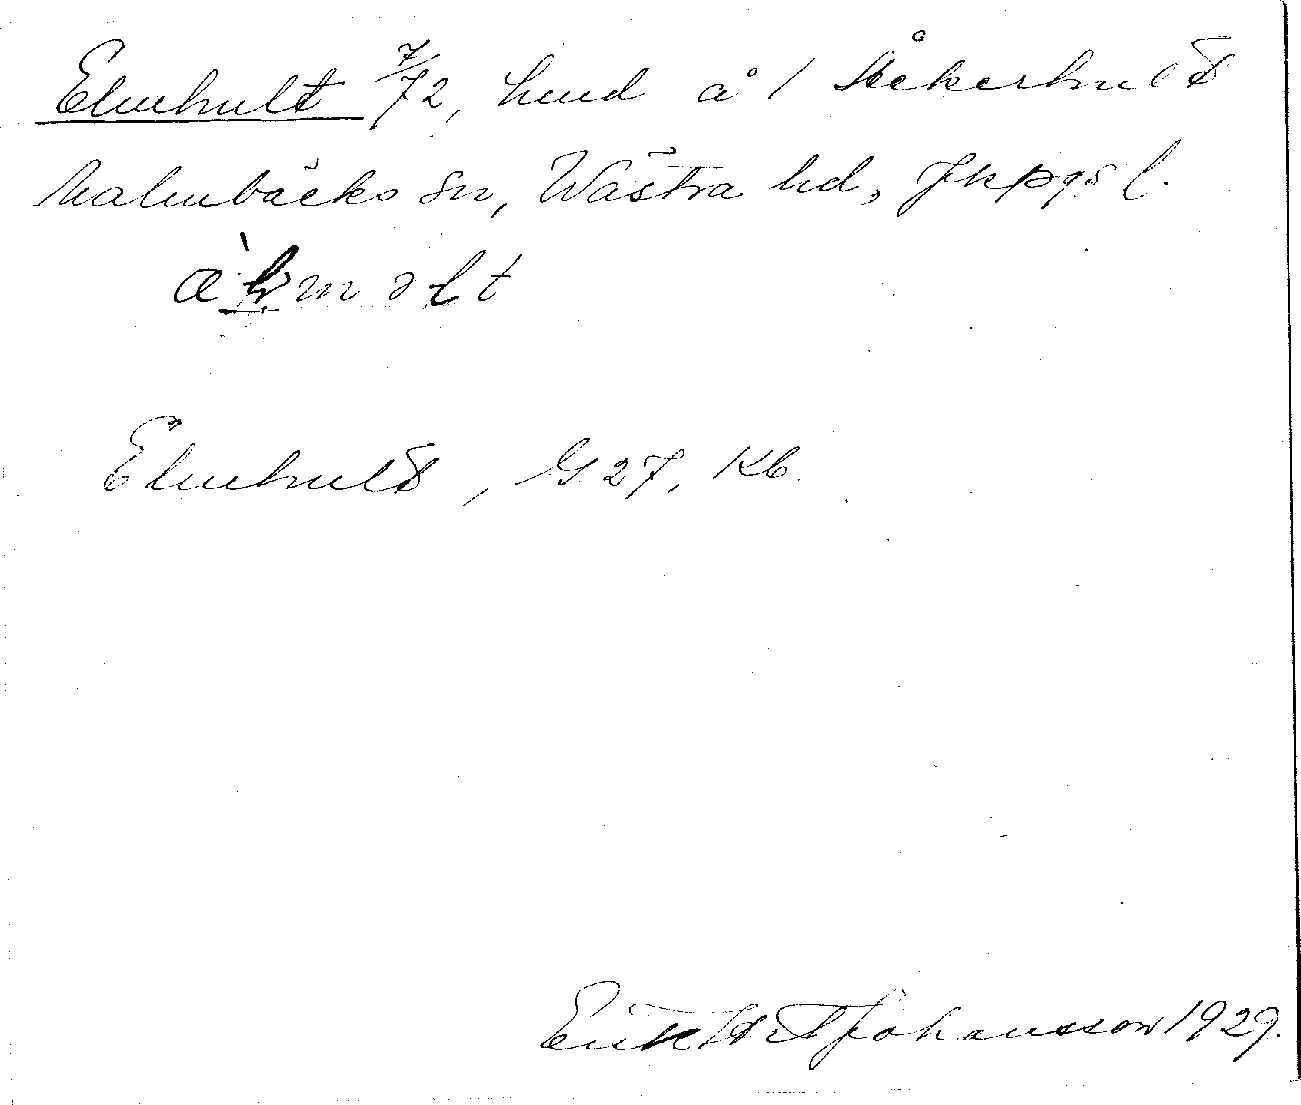 Elmhult 7/72, hmd å 1 Åkerhult
Malmbäcks sn, Västra hd, Jkpgs l.
Elmhult, G 27, Kb.
Johansson 1929.